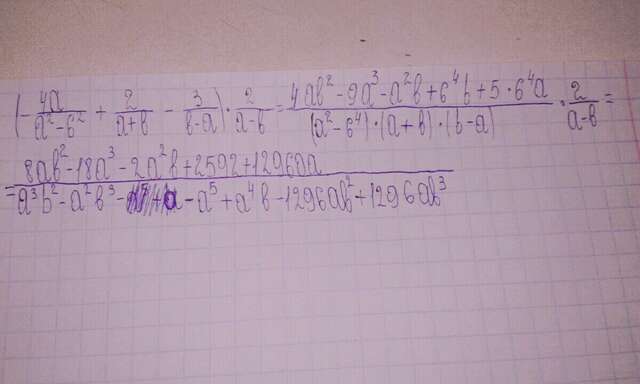 (- 4a/(a²-6²) + 2/(a+b) - 3/(b-a)) · 2/(a-b) = (4ab²-9a³-a²b+6⁴b+5·6⁴a)/((a²-6⁴)·(a+b)·(b-a)) · 2/(a-b) =
= (8ab²-18a³-2a²b+2592+12960a)/(a³b²-a²b³-a⁵+a⁴b-1296ab²+1296ab³)